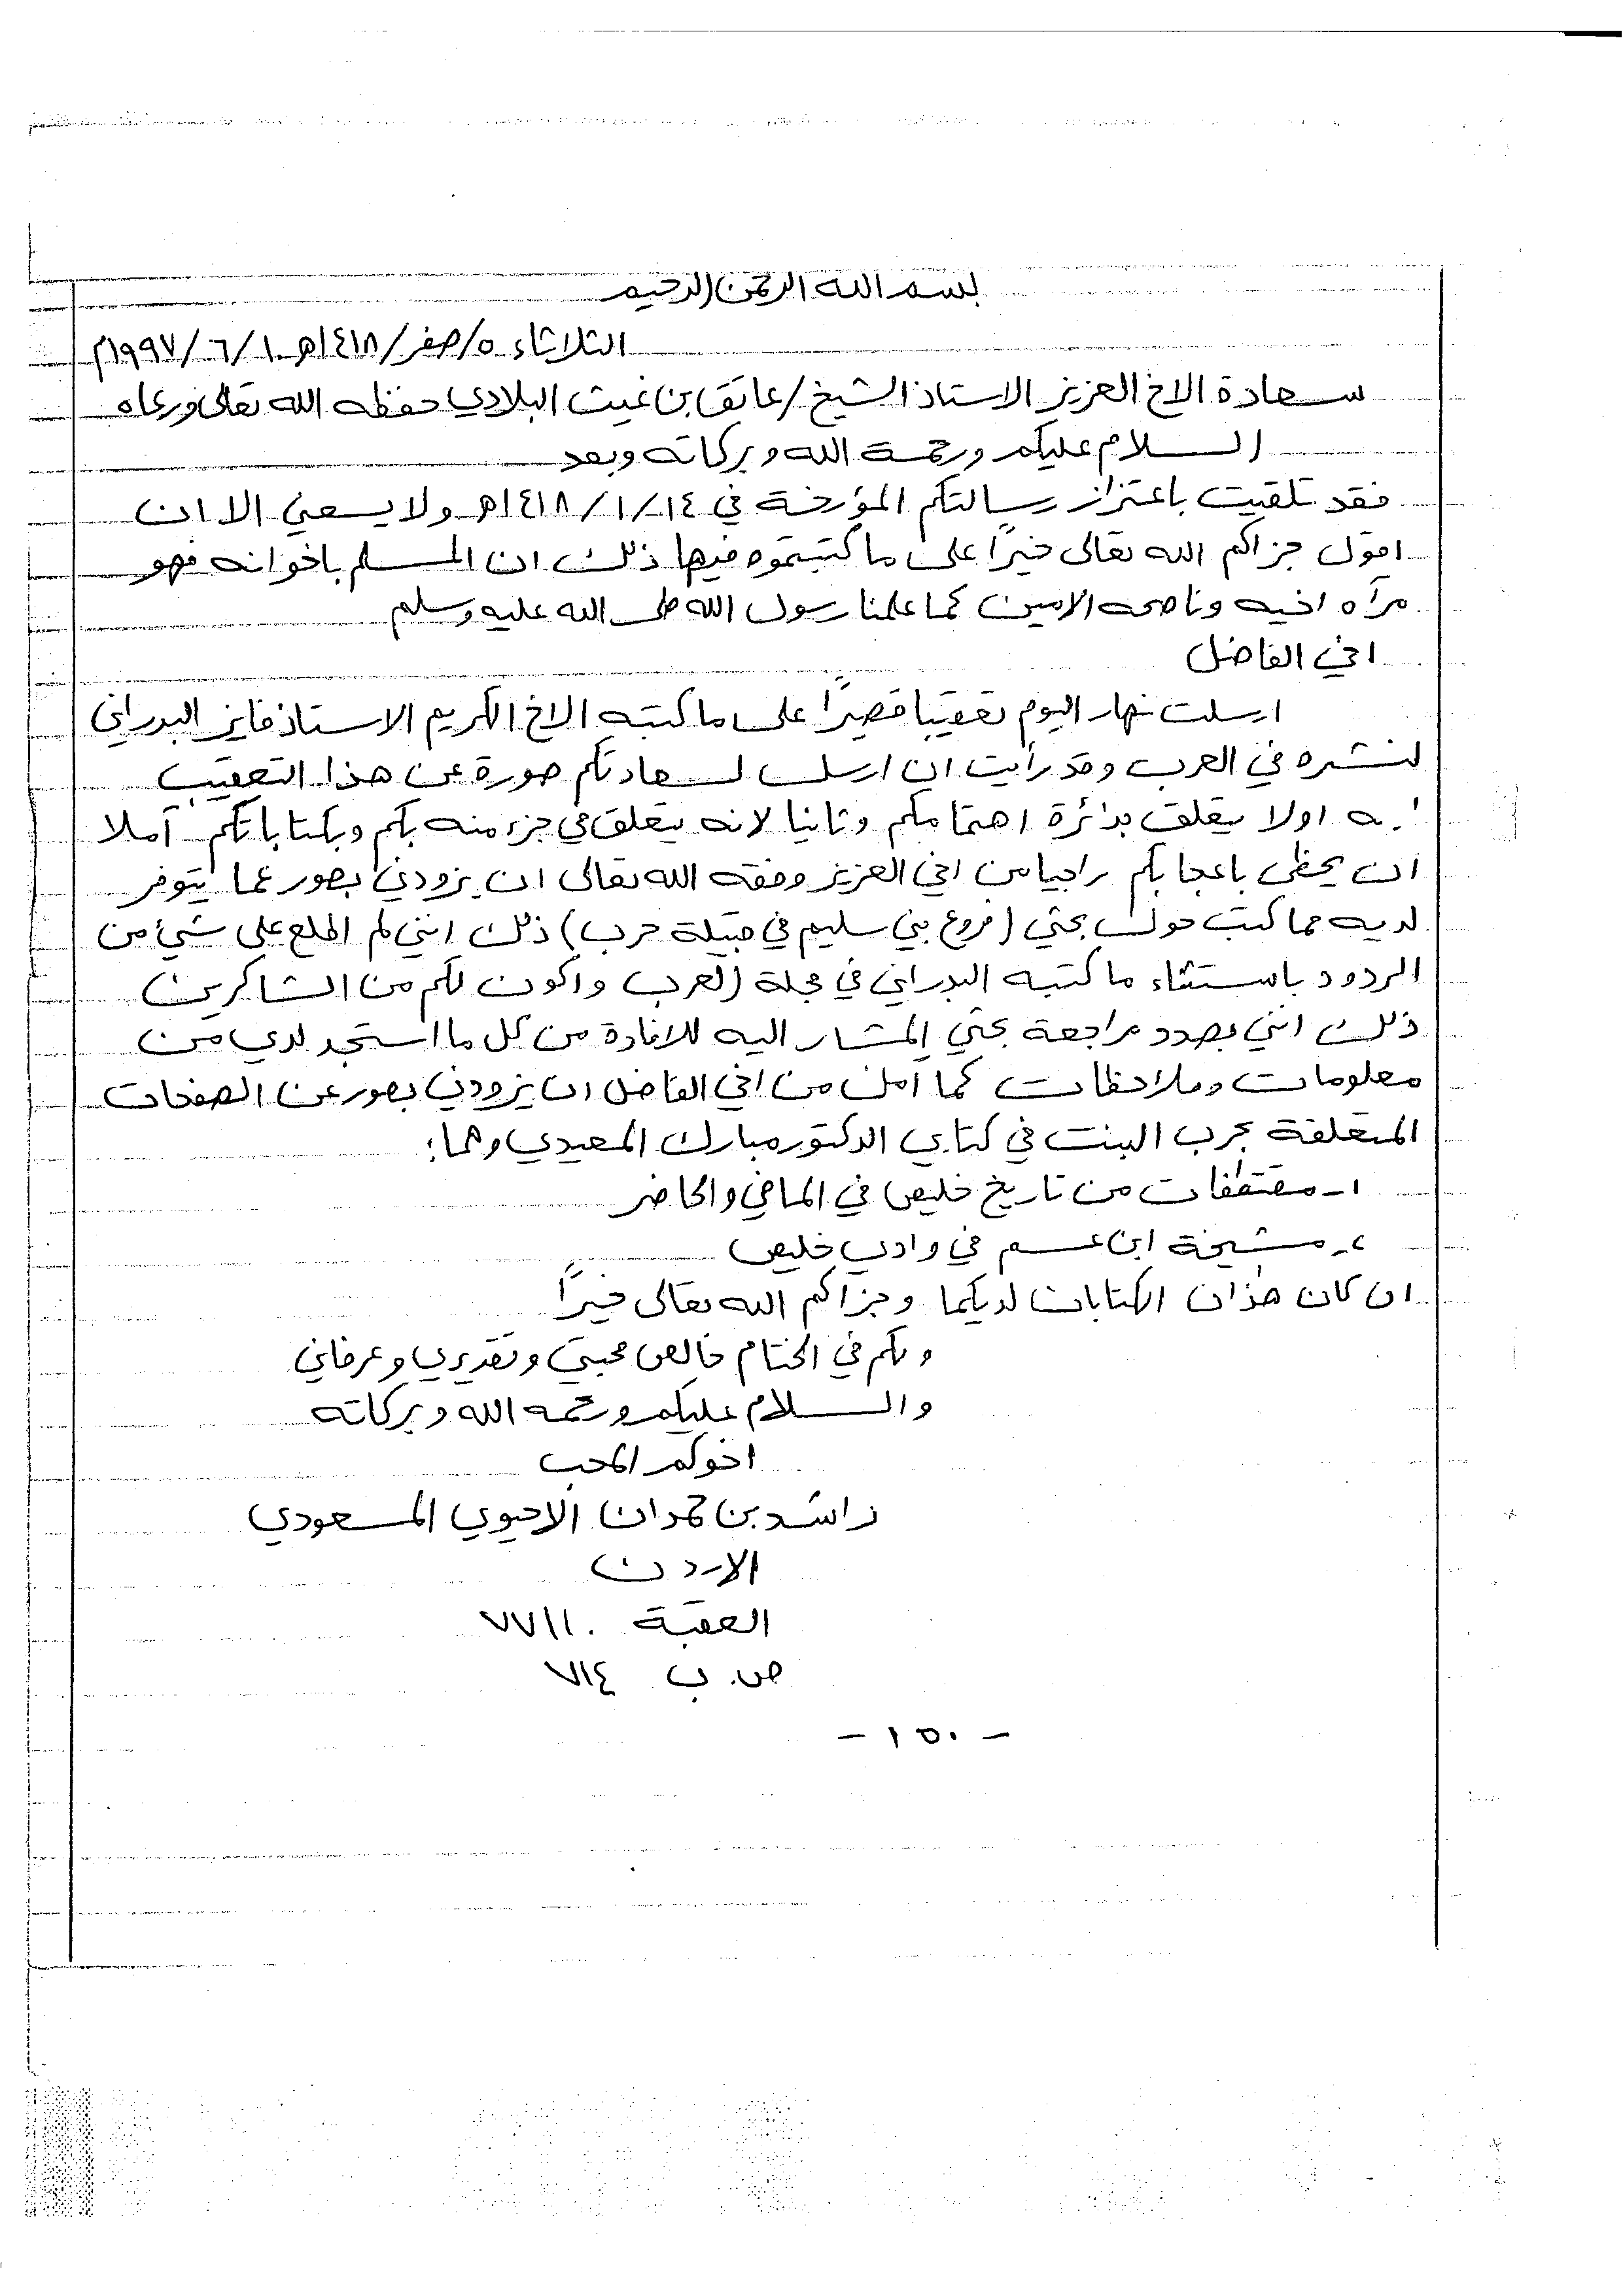 بسم الله الرحمن الرحيم
الثلاثاء ٥/صفر/١٤١٨هـ ١٠/٦/١٩٩٧م
سعادة الاخ العزيز الاستاذ الشيخ/عاتق بن غيث البلادي حفظه الله تعالى ورعاه
السلام عليكم ورحمة الله وبركاته وبعد
فقد تلقيت باعتزاز رسالتكم المؤرخة في ١٤/١/١٤١٨هـ ولا يسعني الا ان
اقول جزاكم الله تعالى خيرًا على ما كتبتموه فيها ذلك ان المسلم باخوانه فهو
مرآه اخيه وناصحه الامين كما علمنا رسول الله صلى الله عليه وسلم
اخي الفاضل
ارسلت نهار اليوم تعقيبا قصيرًا على ما كتبه الاخ الكريم الاستاذ فايز البدراني
لنشره في العرب وقد رأيت ان ارسل لسعادتكم صورة عن هذا التعقيب
اولا يتعلق بدائرة اهتمامكم وثانيا لانه يتعلق في جزء منه بكم وبكتاباتكم آملا
ان يحظى باعجابكم راجيا من اخي العزيز وفقه الله تعالى ان يزودني بصور عما يتوفر
لديه مما كتب حول بحثي (فروع بني سليم في قبيلة حرب) ذلك انني لم اطلع على شيء من
الردود باستثناء ما كتبه البدراني في مجلة العرب واكون لكم من الشاكرين
ذلك انني بصدد مراجعة بحثي المشار اليه للافادة من كل ما استجد لدي من
معلومات وملاحظات كما آمل من اخي الفاضل ان يزودني بصور عن الصفحات
المتعلقة بحرب البنت في كتابي الدكتور مبارك المعبدي وهما:
١- مقتطفات من تاريخ خليص في الماضي والحاضر
٢- مشيخة ابن عسم في وادي خليص
ان كان هذان الكتابان لديكما وجزاكم الله تعالى خيرًا
ولكم في الختام خالص محبتي وتقديري وعرفاني
والسلام عليكم ورحمه الله وبركاته
اخوكم المحب
راشد بن حمدان الاحيوي المسعودي
الاردن
العقبة ٧٧١١٠
ص.ب ٧١٤
- ١٥٠ -